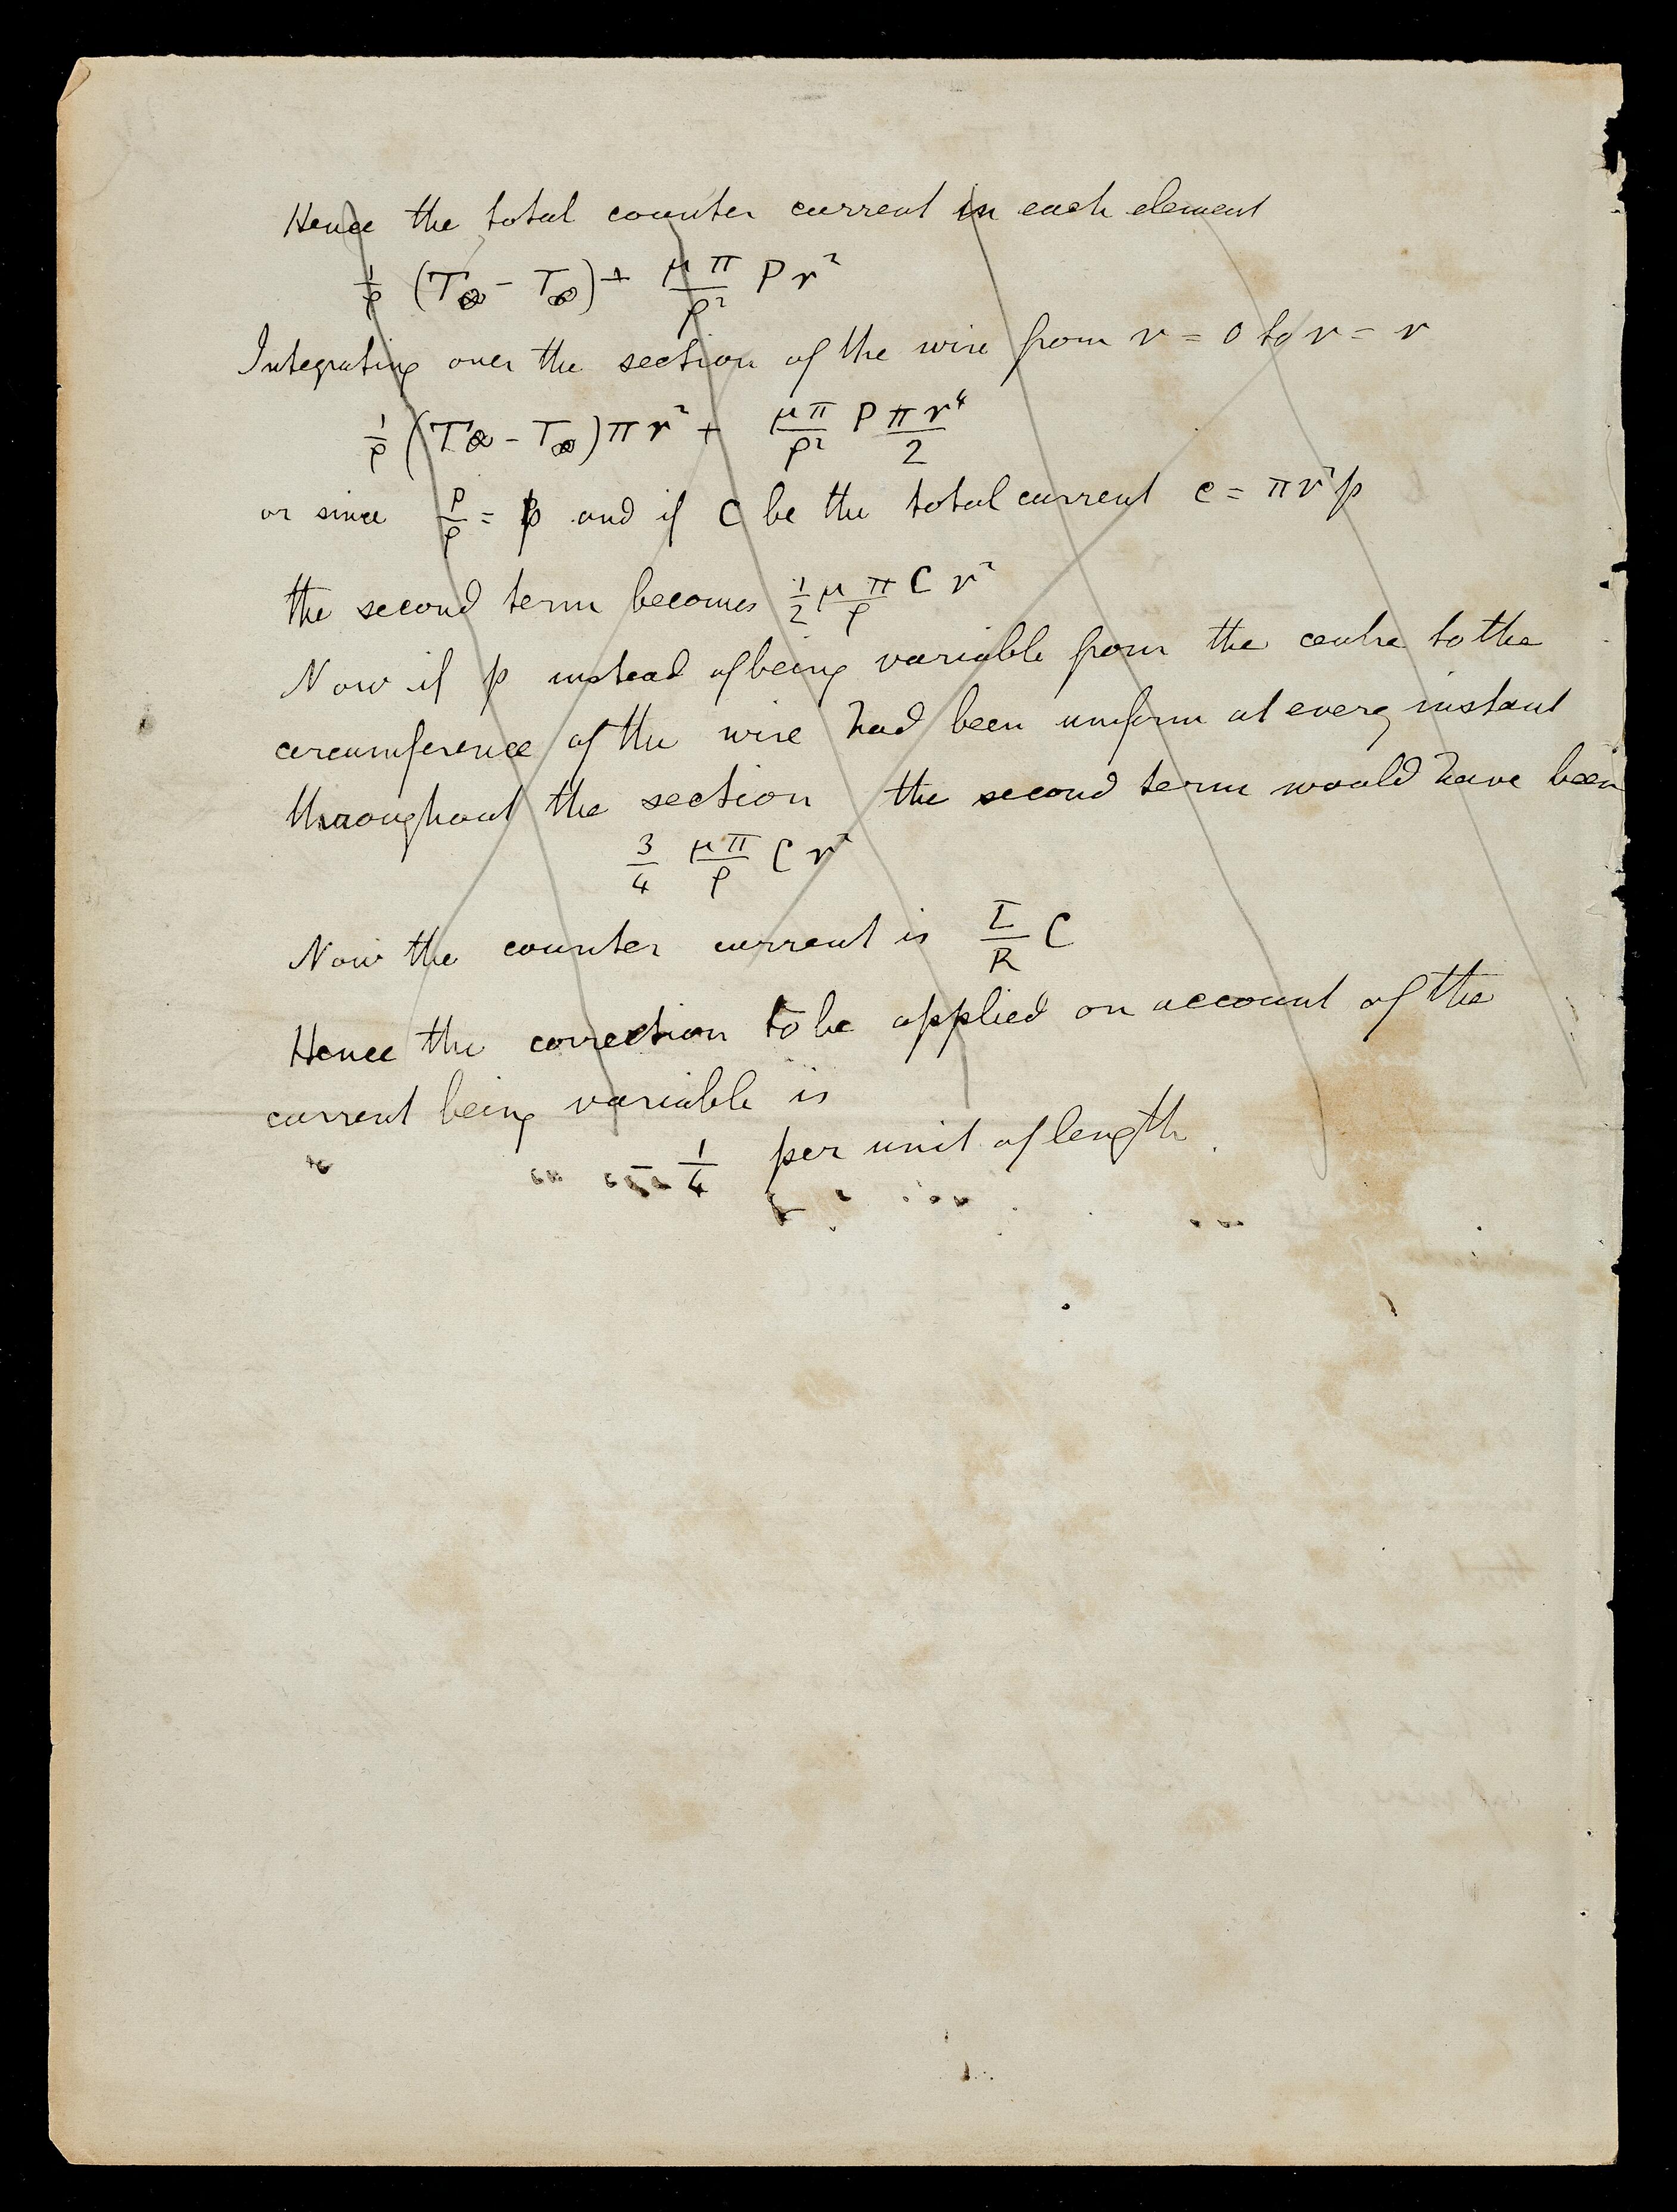 Hence the total counter current in each element
1/ρ (T∞ - T∞) + μπ/ρ² P r²
Integrating over the section of the wire from r = 0 to r = r
1/ρ (T∞ - T∞) π r² + μπ/ρ² P π r⁴/2
or since P/ρ = p and if C be the total current c = π r² p
the second term becomes 1/2 μπ/ρ C r²
Now if p instead of being variable from the centre to the
circumference of the wire had been uniform at every instant
throughout the section the second term would have been
3/4 μπ/ρ C r²
Now the counter current is L/R C
Hence the correction to be applied on account of the
current being variable is
- 1/4 per unit of length.